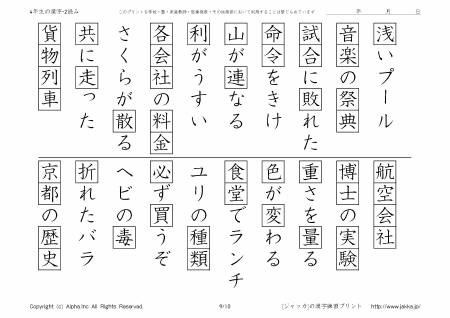 4年生の漢字-2読み
このプリントを学校・塾・家庭教師・医療機関・その他施設において利用することは禁じられています
年 月 日
浅いプール
音楽の祭典
試合に敗れた
命令をきけ
山が連なる
利がうすい
各会社の料金
さくらが散る
共に走った
貨物列車
航空会社
博士の実験
重さを量る
色が変わる
食堂でランチ
ユリの種類
必ず買うぞ
ヘビの毒
折れたバラ
京都の歴史
Copyright (c) Alpha.Inc All Rights Reserved.
9/10
[ジャッカ]の漢字練習プリント
http://www.jakka.jp/